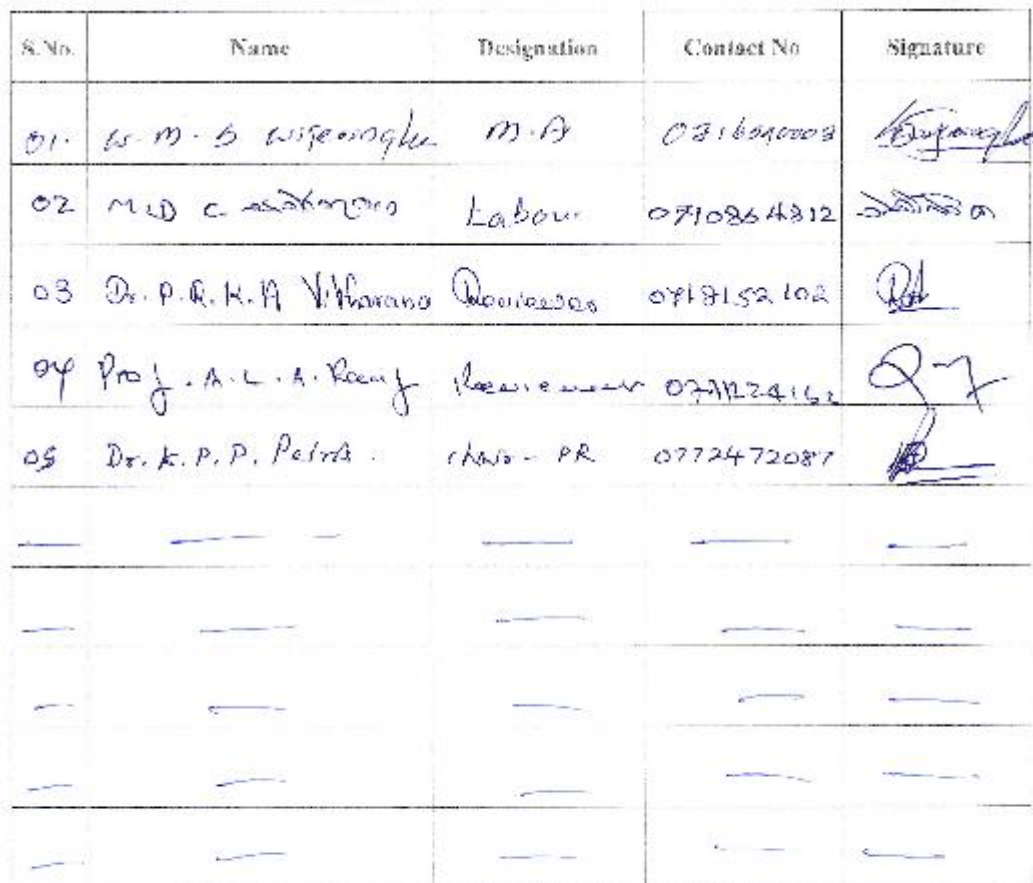 S.No. Name Designation Contact No Signature
01. W. M. S wijesinghe M.A
02 M.D C. Labour 0710864812
03 Dr. P.R.K.A Vitharana Reviewer 0718152102
04 Prof. A. L. A. Rauf Reviewer
05 Dr. K. P. P. Peiris. chair - PR 0772472087